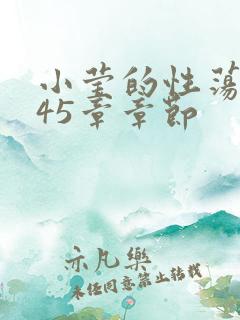 小莹的性荡
45章章節
示凡樂
未经同意禁止转载